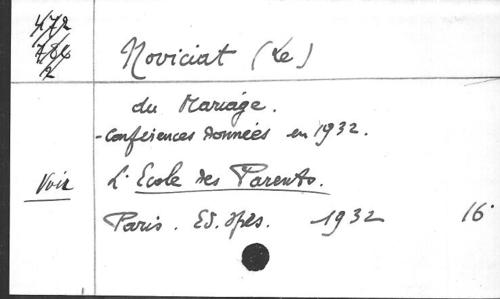 Noviciat (Le)
du Mariage.
- Conférences données en 1932.
Voir L'Ecole des Parents.
Paris. Ed. Spes. 1932 16°